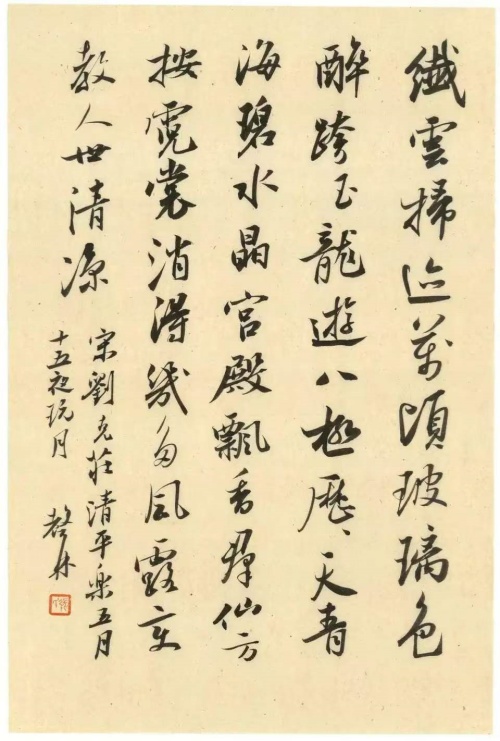 纖雲掃迹萬頃玻璃色
醉跨玉龍遊八極歷、天青
海碧水晶宮殿飄香群仙方
按霓裳消得幾多風露變
教人世清凉
宋劉克莊清平樂五月
十五夜玩月